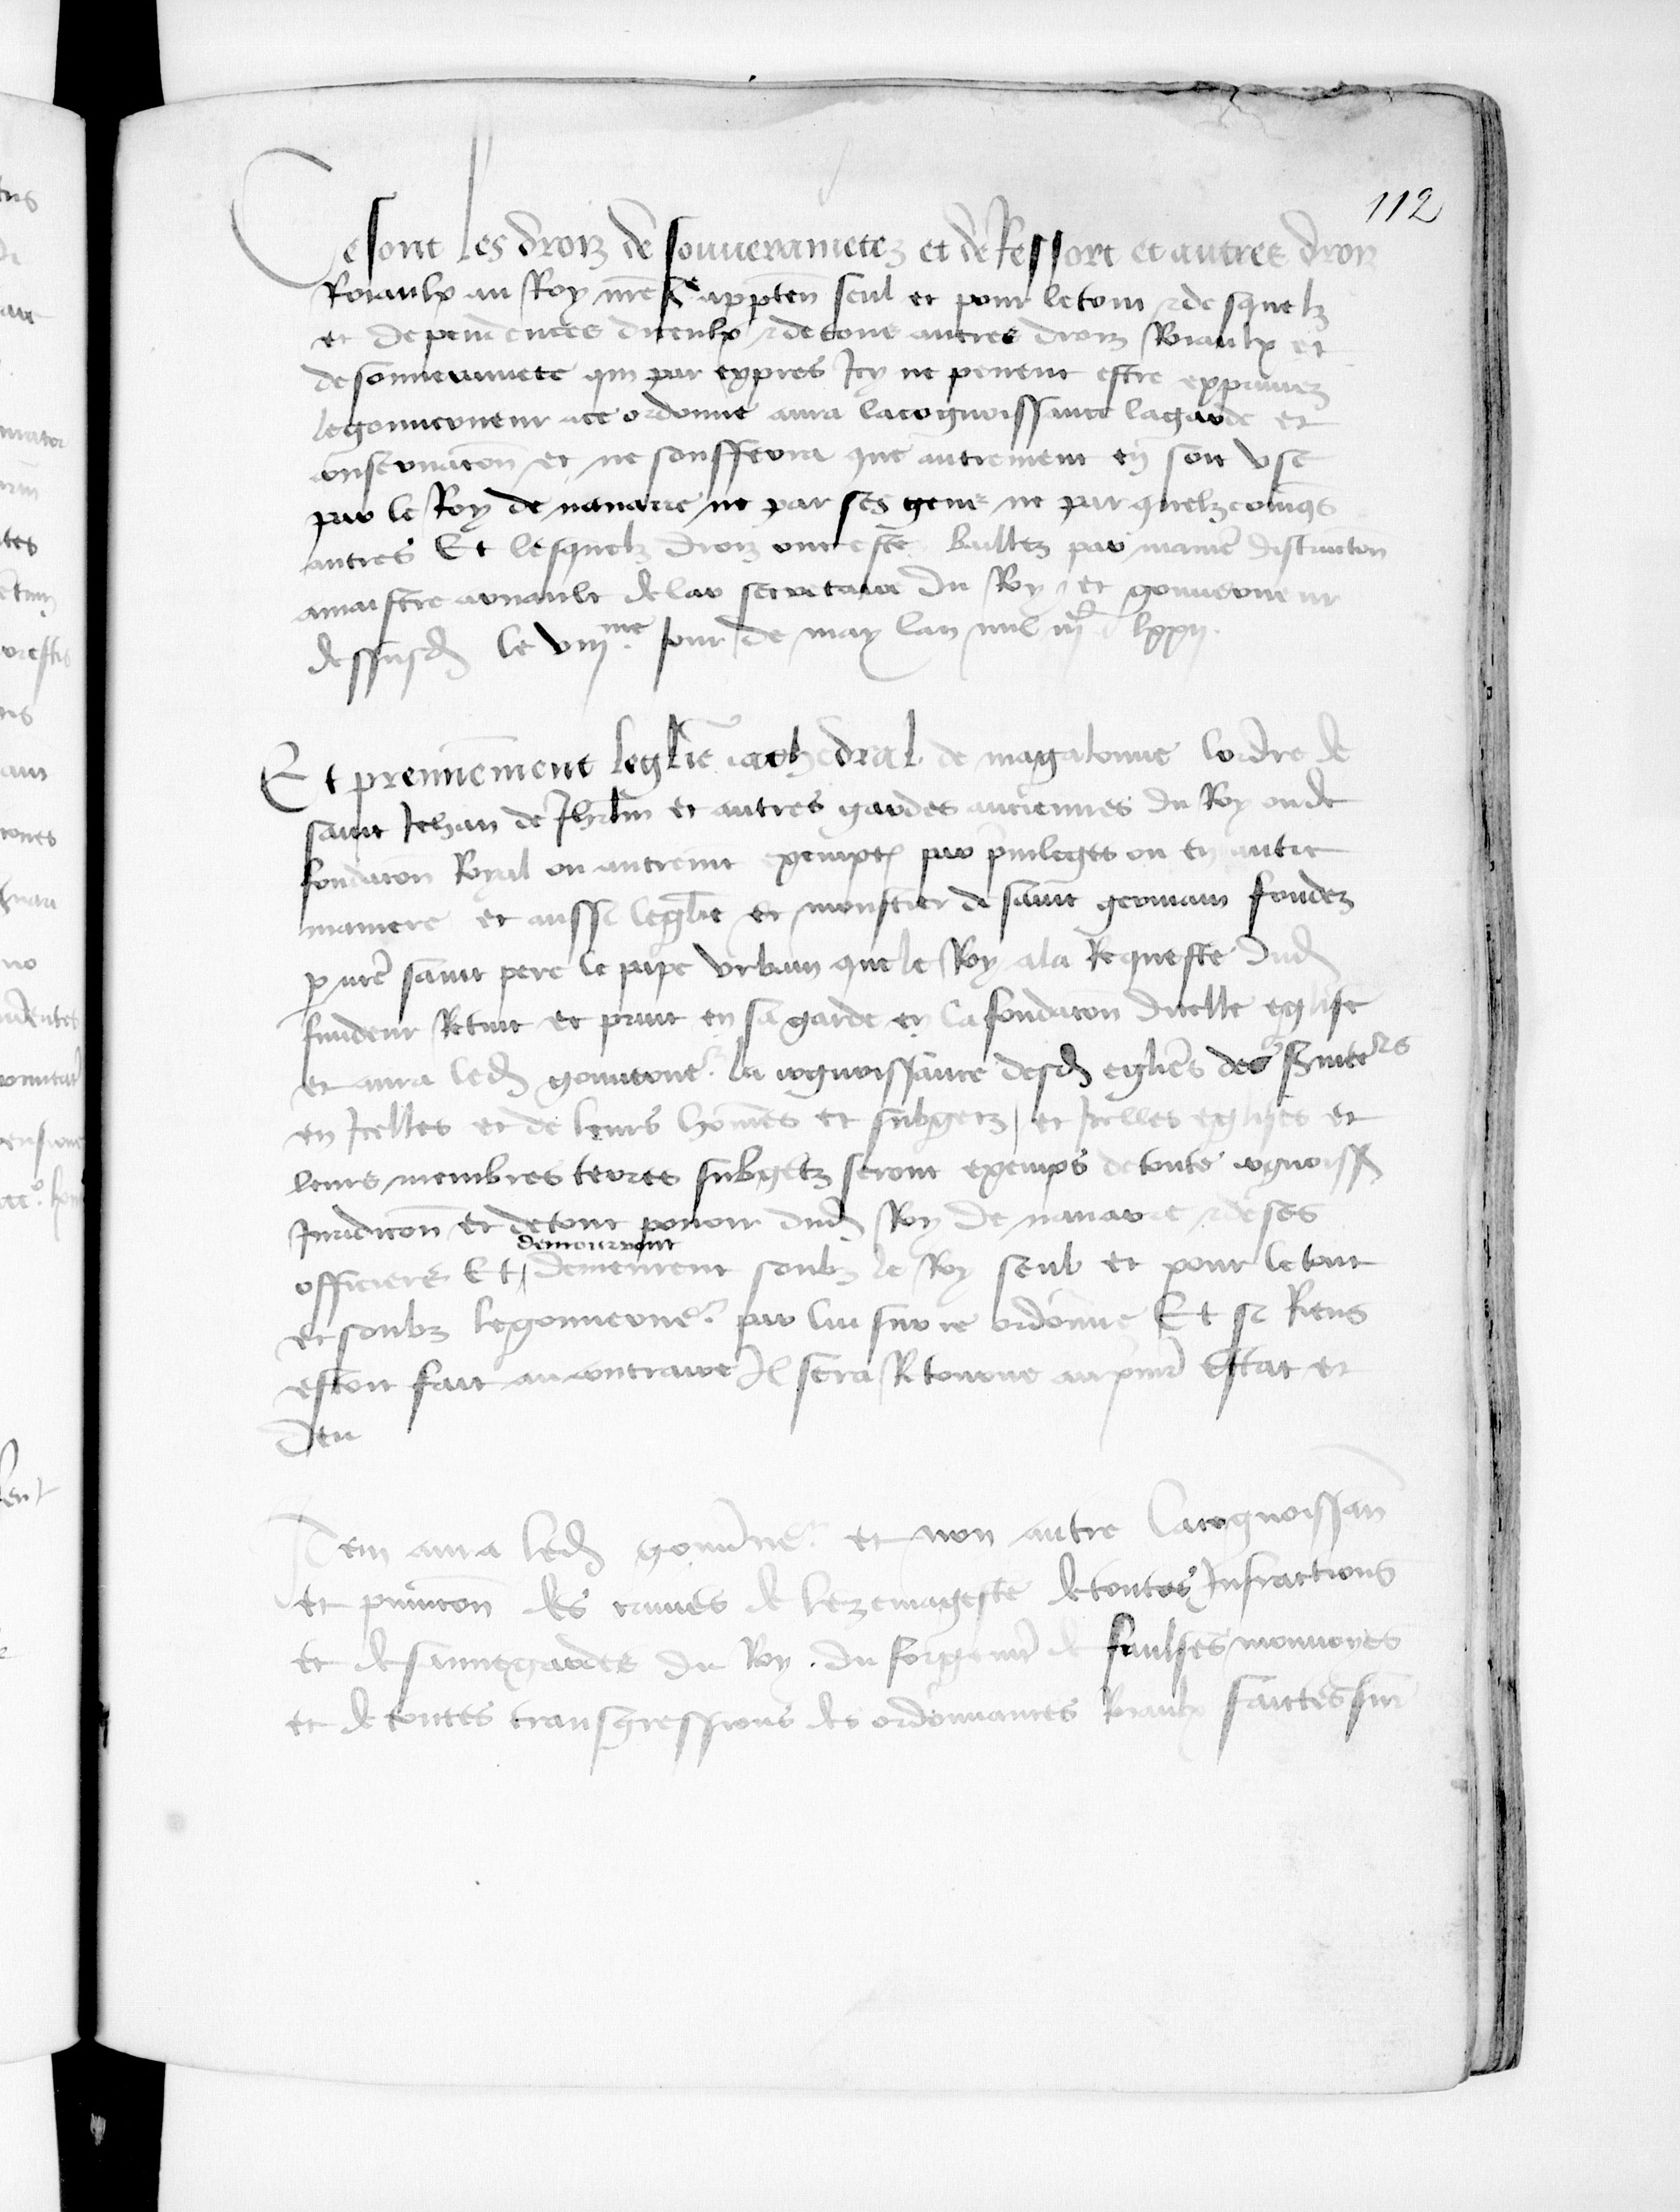 112
Ce sont les droiz de souverainetez et de Ressort et autres droiz
Roiaulx au Roy nre s.e appten seul et pour le tout & desquelz
et deppendences diceulx & de tous autres droiz Roiaulx et
de souverainete qui par expres Icy ne peuent estre exprimez
le gouverneur a ce ordonne aura la cognoissance la garde et
conservacon et ne souffrera que autrement en soit use
par le Roy de navarre ne par ses gens ne par quelzconqs
autres Et lesquelz droiz ont este baillez par maniere distruccon
a maistre arnault de lar secretaire du Roy et gouverneur
dessusd le viij.me jour de may lan mil iijc lxxij.
Et premierement leglise cathedral de magalonne lordre de
saint Jehan de Jhrlm et autres gardes anciennes du Roy ou de
fondacon Royal ou autremt exempts par privileges ou en autre
maniere et aussi leglise et monstier de saint germain fondez
p nre saint pere le pape urbain que le Roy a la Requeste dud
fundeur Retint et print en sa garde en la fondacon dicelle eglise
et aura led gouverne.r la cognoissance desd eglises des
en Icelles et de leurs hommes et subgetz et Icelles eglises et
leurs membres terres subgetz seront exemps de toute cgnoiss
Juridicon et de tout pouoir dud Roy de navarre & de ses
demourront
officiers Et demeurent soubz le Roy seul et pour le tout
et soubz le gouverne.r par lui sur ce ordonne Et se Riens
estoit fait au contraire Il sera Retourne au pmier Estat et
deu
Item aura led gouvne.r et non autre la cognoissan
et punicon des crimes de leze mageste de toutes Infractions
et de sauvegardes du Roy . du forgemt de faulses monnoyes
et de toutes transgressions des ordonnances Roiaulx faictes sur